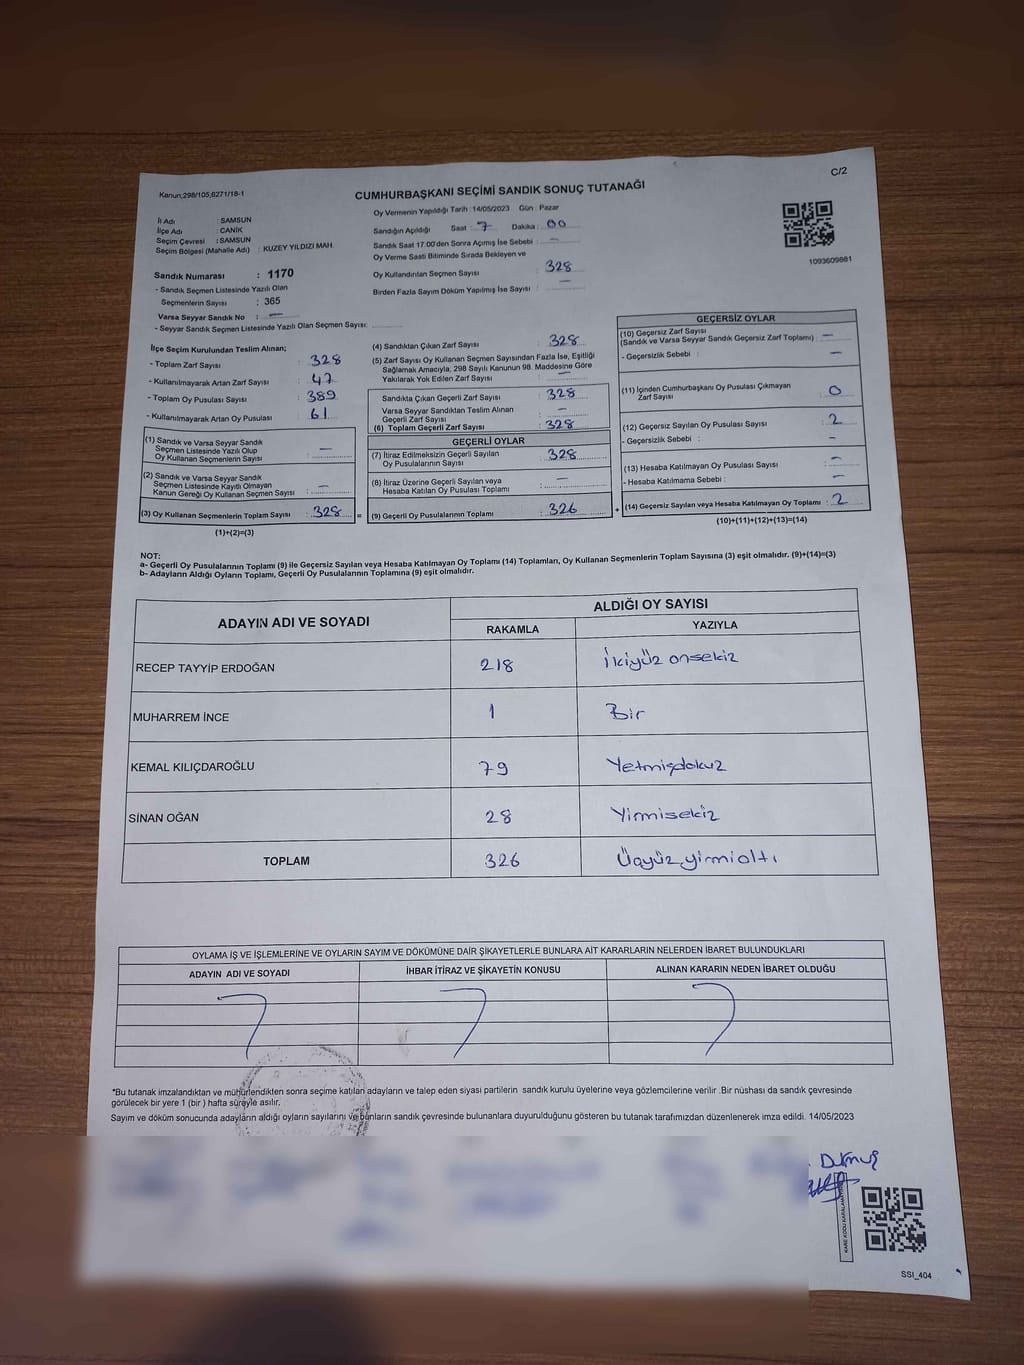 C/2
Kanun,298/105,6271/18-1
CUMHURBAŞKANI SEÇİMİ SANDIK SONUÇ TUTANAĞI
İl Adı : SAMSUN
İlçe Adı : CANİK
Seçim Çevresi : SAMSUN
Seçim Bölgesi (Mahalle Adı) : KUZEY YILDIZI MAH.
Sandık Numarası : 1170
- Sandık Seçmen Listesinde Yazılı Olan
Seçmenlerin Sayısı : 365
Varsa Seyyar Sandık No : —
- Seyyar Sandık Seçmen Listesinde Yazılı Olan Seçmen Sayısı:
Oy Vermenin Yapıldığı Tarih :14/05/2023 Gün : Pazar
Sandığın Açıldığı Saat : 7 Dakika : 00
Sandık Saat 17.00'den Sonra Açımış İse Sebebi : —
Oy Verme Saati Bitiminde Sırada Bekleyen ve
Oy Kullandırılan Seçmen Sayısı : 328
Birden Fazla Sayım Döküm Yapılmış İse Sayısı : —
1093609881
İlçe Seçim Kurulundan Teslim Alınan;
- Toplam Zarf Sayısı : 328
- Kullanılmayarak Artan Zarf Sayısı : 47
- Toplam Oy Pusulası Sayısı : 389
- Kullanılmayarak Artan Oy Pusulası : 61
(1) Sandık ve Varsa Seyyar Sandık
Seçmen Listesinde Yazılı Olup
Oy Kullanan Seçmenlerin Sayısı : —
(2) Sandık ve Varsa Seyyar Sandık
Seçmen Listesinde Kayıtlı Olmayan
Kanun Gereği Oy Kullanan Seçmen Sayısı : —
(3) Oy Kullanan Seçmenlerin Toplam Sayısı : 328 =
(1)+(2)=(3)
(4) Sandıktan Çıkan Zarf Sayısı : 328
(5) Zarf Sayısı Oy Kullanan Seçmen Sayısından Fazla İse, Eşitliği
Sağlamak Amacıyla, 298 Sayılı Kanunun 98. Maddesine Göre
Yakılarak Yok Edilen Zarf Sayısı : —
Sandıkta Çıkan Geçerli Zarf Sayısı : 328
Varsa Seyyar Sandıktan Teslim Alınan
Geçerli Zarf Sayısı : —
(6) Toplam Geçerli Zarf Sayısı : 328
GEÇERLİ OYLAR
(7) İtiraz Edilmeksizin Geçerli Sayılan
Oy Pusulalarının Sayısı : 328
(8) İtiraz Üzerine Geçerli Sayılan veya
Hesaba Katılan Oy Pusulası Toplamı : —
(9) Geçerli Oy Pusulalarının Toplamı : 326 +
GEÇERSİZ OYLAR
(10) Geçersiz Zarf Sayısı
(Sandık ve Varsa Seyyar Sandık Geçersiz Zarf Toplamı) : —
- Geçersizlik Sebebi : —
(11) İçinden Cumhurbaşkanı Oy Pusulası Çıkmayan
Zarf Sayısı : 0
(12) Geçersiz Sayılan Oy Pusulası Sayısı : 2
- Geçersizlik Sebebi : —
(13) Hesaba Katılmayan Oy Pusulası Sayısı : —
- Hesaba Katılmama Sebebi : —
(14) Geçersiz Sayılan veya Hesaba Katılmayan Oy Toplamı : 2
(10)+(11)+(12)+(13)=(14)
NOT:
a- Geçerli Oy Pusulalarının Toplamı (9) ile Geçersiz Sayılan veya Hesaba Katılmayan Oy Toplamı (14) Toplamları, Oy Kullanan Seçmenlerin Toplam Sayısına (3) eşit olmalıdır. (9)+(14)=(3)
b- Adayların Aldığı Oyların Toplamı, Geçerli Oy Pusulalarının Toplamına (9) eşit olmalıdır.
ADAYIN ADI VE SOYADI ALDIĞI OY SAYISI
RAKAMLA YAZIYLA
RECEP TAYYİP ERDOĞAN 218 İkiyüz onsekiz
MUHARREM İNCE 1 Bir
KEMAL KILIÇDAROĞLU 79 Yetmişdokuz
SİNAN OĞAN 28 Yirmisekiz
TOPLAM 326 Üçyüz yirmialtı
OYLAMA İŞ VE İŞLEMLERİNE VE OYLARIN SAYIM VE DÖKÜMÜNE DAİR ŞİKAYETLERLE BUNLARA AİT KARARLARIN NELERDEN İBARET BULUNDUKLARI
ADAYIN ADI VE SOYADI İHBAR İTİRAZ VE ŞİKAYETİN KONUSU ALINAN KARARIN NEDEN İBARET OLDUĞU
*Bu tutanak imzalandıktan ve mühürlendikten sonra seçime katılan adayların ve talep eden siyasi partilerin sandık kurulu üyelerine veya gözlemcilerine verilir .Bir nüshası da sandık çevresinde
görülecek bir yere 1 (bir ) hafta süreyle asılır.
Sayım ve döküm sonucunda adayların aldığı oyların sayılarını ve bunların sandık çevresinde bulunanlara duyurulduğunu gösteren bu tutanak tarafımızdan düzenlenerek imza edildi. 14/05/2023
Durmuş
SSI_404